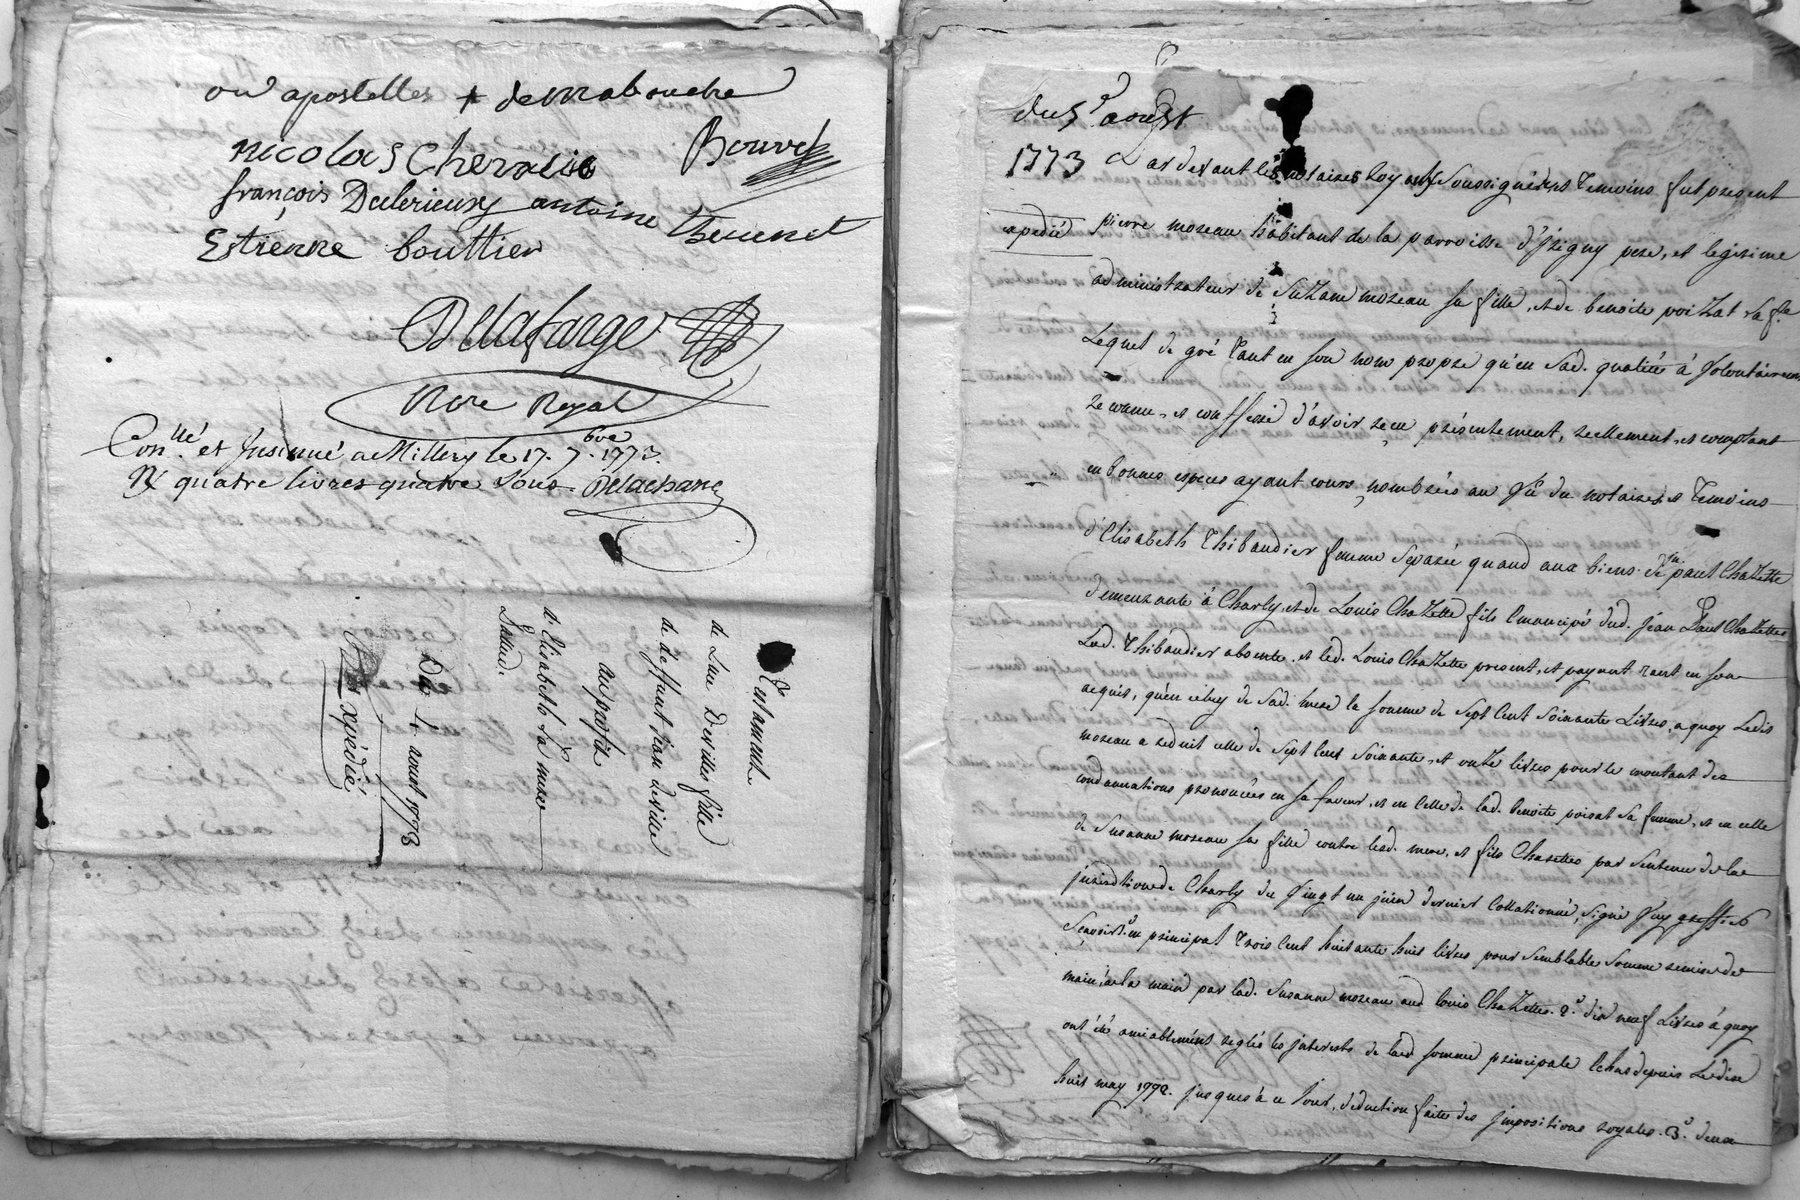 ou apostelles + demabouche
Bouvet
nicolas Chevalie
françois Dulerieux antoine Thevenet
Estienne bouttier
Delafarge
Nore Royal
Con.lé et Insinué a Millery le 17. 7.bre 1773.
R quatre livres quatre sous. Delachana
Testament
de Lau Desvilles fille
de deffunt jean desville
au profit
d'Elisabeth sa mere
Du 4 aoust 1773
Expédié
du 5.e aoust
1773
expedié
Par devant les notaires Royaux Soussignés et temoins fut present
pierre mozeau habitant de la parroisse d'Irigny pere, et legitime
administrateur de Suzane mozeau sa fille, et de benoite poizat sa f.e
Lequel de gré tant en son nom propre qu'en Sad. qualité à Volontairement
reconnu, et confessé d'avoir recu présentement, réellement, et comptant
en bonnes especes ayant cours, nombrées au Vû du notaires, et temoins
d'Elisabeth Thibaudier femme séparée quand aux biens de jean paul Chazette
demeurante à Charly, et de Louis Chazette fils émancipé dud. jean Paul Chazettes
Lad. Thibaudier absente, et led. Louis Chazette present, et payant tant en son
acquit, qu'en celuy de Sad. mere la somme de Sept Cent Soixante Livres, a quoy Ledit
mozeau a reduit celle de Sept Cent Soixante, et onze livres pour le montant des
condamnations prononcées en sa faveur, et en celle de lad. benoite poizat sa femme, et en celle
de Susanne mozeau sa fille contre lesd. mere, et fils Chazettes par Sentence de la
jurisdition de Charly du Vingt un juin dernier Collationné, signé Guy greffier
Sçavoir 1.° en principal trois cent huitante huit livres pour Semblable Somme remise de
main, à la main par lad. Susanne mozeau aud Louis Chazettes. 2.° dix neuf Livres à quoy
ont été amiablement réglés les interests de lad somme principale Echus depuis Le dix
huit may 1772. jusques à ce jour, déduction faite des impositions royales. 3.° deux